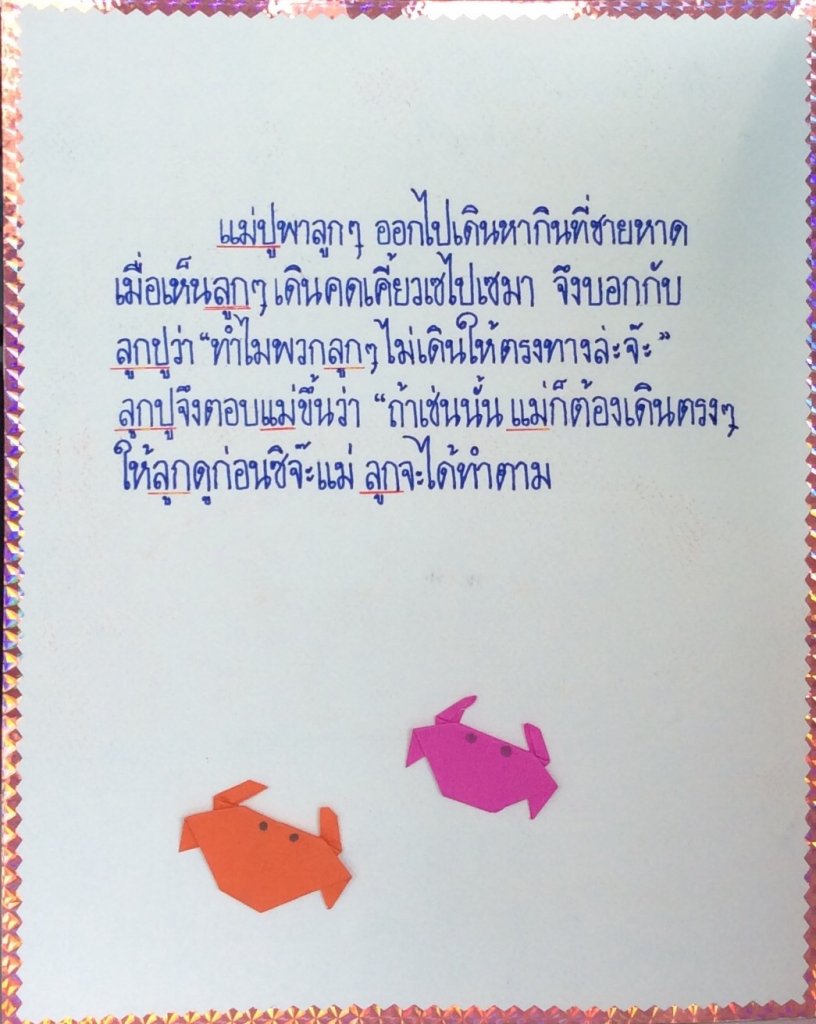 แม่ปูพาลูกๆ ออกไปเดินหากินที่ชายหาด
เมื่อเห็นลูกๆ เดินคดเคี้ยวเซไปเซมา จึงบอกกับ
ลูกปูว่า “ทำไมพวกลูกๆ ไม่เดินให้ตรงทางล่ะจ๊ะ”
ลูกปูจึงตอบแม่ขึ้นว่า “ถ้าเช่นนั้น แม่ก็ต้องเดินตรงๆ
ให้ลูกดูก่อนซิจ๊ะแม่ ลูกจะได้ทำตาม